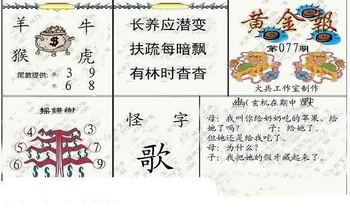 羊 牛
猴 虎
尾數提供: 3 9
6 8
长养应潜变
扶疏每暗飘
有林时杳杳
黄金報
第077期
火兵工作室制作
摇錢樹
7 9
4 3
1 6
怪 字
歌
幽(玄机在期中)默
母:我叫你给奶奶吃的苹果,给
她了吗? 子:给她了。
但她还是给我吃了。
母:为什么?
子:我把她的假牙藏起来了.